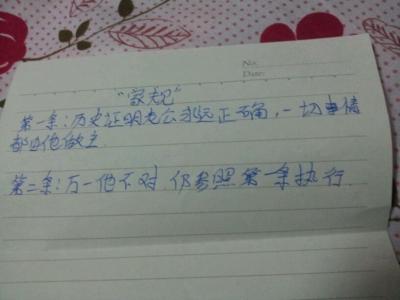 No:
Date:
“家规”
第一条:历史证明老公永远正确,一切事情
都由他做主.
第二条:万一他不对.仍参照第一条执行.